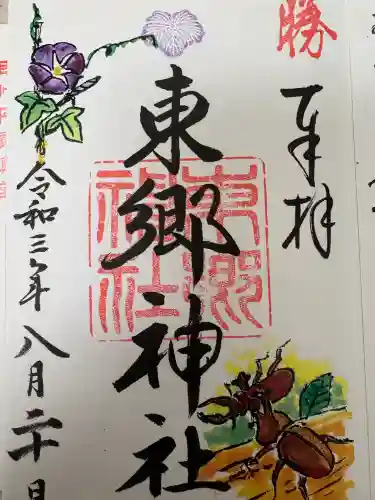 勝
奉拝
東郷神社
東郷神社
令和三年八月二十日